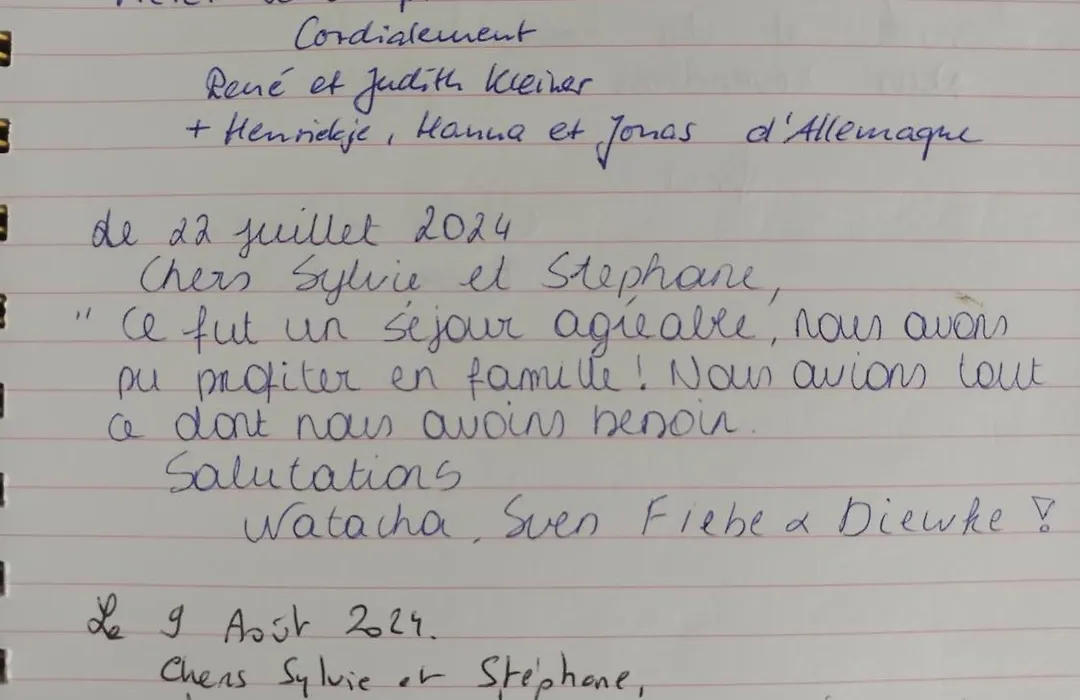 Cordialement
René et Judith Kleiner
+ Henriekje, Hanna et Jonas d'Allemagne
de 22 juillet 2024
Chers Sylvie et Stephane,
" Ce fut un séjour agréable, nous avons
pu profiter en famille! Nous avions tout
ce dont nous avoins besoin.
Salutations
Natacha, Sven Fiebe & Diewke !
Le 9 Août 2024.
Chers Sylvie et Stéphane,